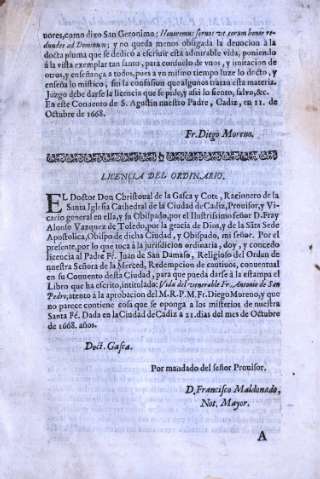 uores, como dixo San Geronimo; Honoremus seruos vt eorum honor redundet ad Dominum; y no queda menos obligada la deuocion à la
docta pluma que se dedicò a escriuir esta admirable vida, poniendo
à la vista exemplar tan santo, para consuelo de vnos, y imitacion de
otros, y enseñança a todos, pues a vn mismo tiempo luze lo docto, y
enseña lo mistico, sin la confusion que algunos traza esta materia.
Iuzgo debe darse la licencia que se pide, y assi lo siento, saluo, &c.
En este Conuento de S. Agustin nuestro Padre, Cadiz, en 11. de
Octubre de 1668.
Fr. Diego Moreno.
LICENCIA DEL ORDINARIO.
EL Doctor Don Christoual de la Gasca y Cote, Racionero de la
Santa Iglesia Cathedral de la Ciudad de Cadiz, Prouisor, y Vicario general en ella, y su Obispado, por el Ilustrissimo señor D. Fray
Alonso Vazquez de Toledo, por la gracia de Dios, y de la Sãta Sede
Apostolica, Obispo de dicha Ciudad, y Obispado, mi señor. Por el
presente, por lo que toca à la jurisdicion ordinaria, doy, y concedo
licencia al Padre Fr. Juan de San Damaso, Religioso del Orden de
nuestra Señora de la Merced, Redempcion de cautiuos, conuentual
en su Conuento desta Ciudad, para que pueda darse à la estampa el
Libro que ha escrito, intitulado: Vida del venerable Fr. Antonio de San
Pedro, atento a la aprobacion del M.R.P.M. Fr. Diego Moreno, y que
no parece contiene cosa que se oponga a los misterios de nuestra
Santa Fè. Dada en la Ciudad de Cadiz a 21. dias del mes de Octubre
de 1668. años.
Doct. Gasca.
Por mandado del señor Prouisor.
D. Francisco Maldonado,
Not. Mayor.
A